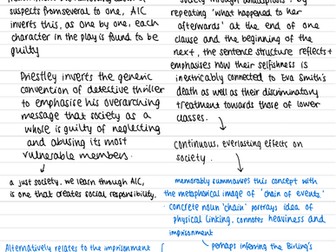 suspects from several to one, AIC
inverts this, as one by one, each
character in the play is found to be
guilty
Priestley inverts the generic
convention of detective thriller
to emphasise his overarching
message that society as a
whole is guilty of neglecting
and abusing its most
vulnerable members.
a just society, we learn through AIC,
is one that creates social responsibility.
Alternatively relates to the imprisonment
repeating 'what happened to her
afterwards' at the end of one
clause and the beginning of the
next, the sentence structure reflects +
emphasises how their selfishness is
inextricably connected to Eva Smith's
death as well as their discriminatory
treatment towards those of lower
classes.
continuous, everlasting effect on
society.
memorably summarises this concept with
the metaphorical image of 'chain of events'
concrete noun 'chain' portrays idea of
physical linking, connotes heaviness and
imprisonment
perhaps inferring the Birling's